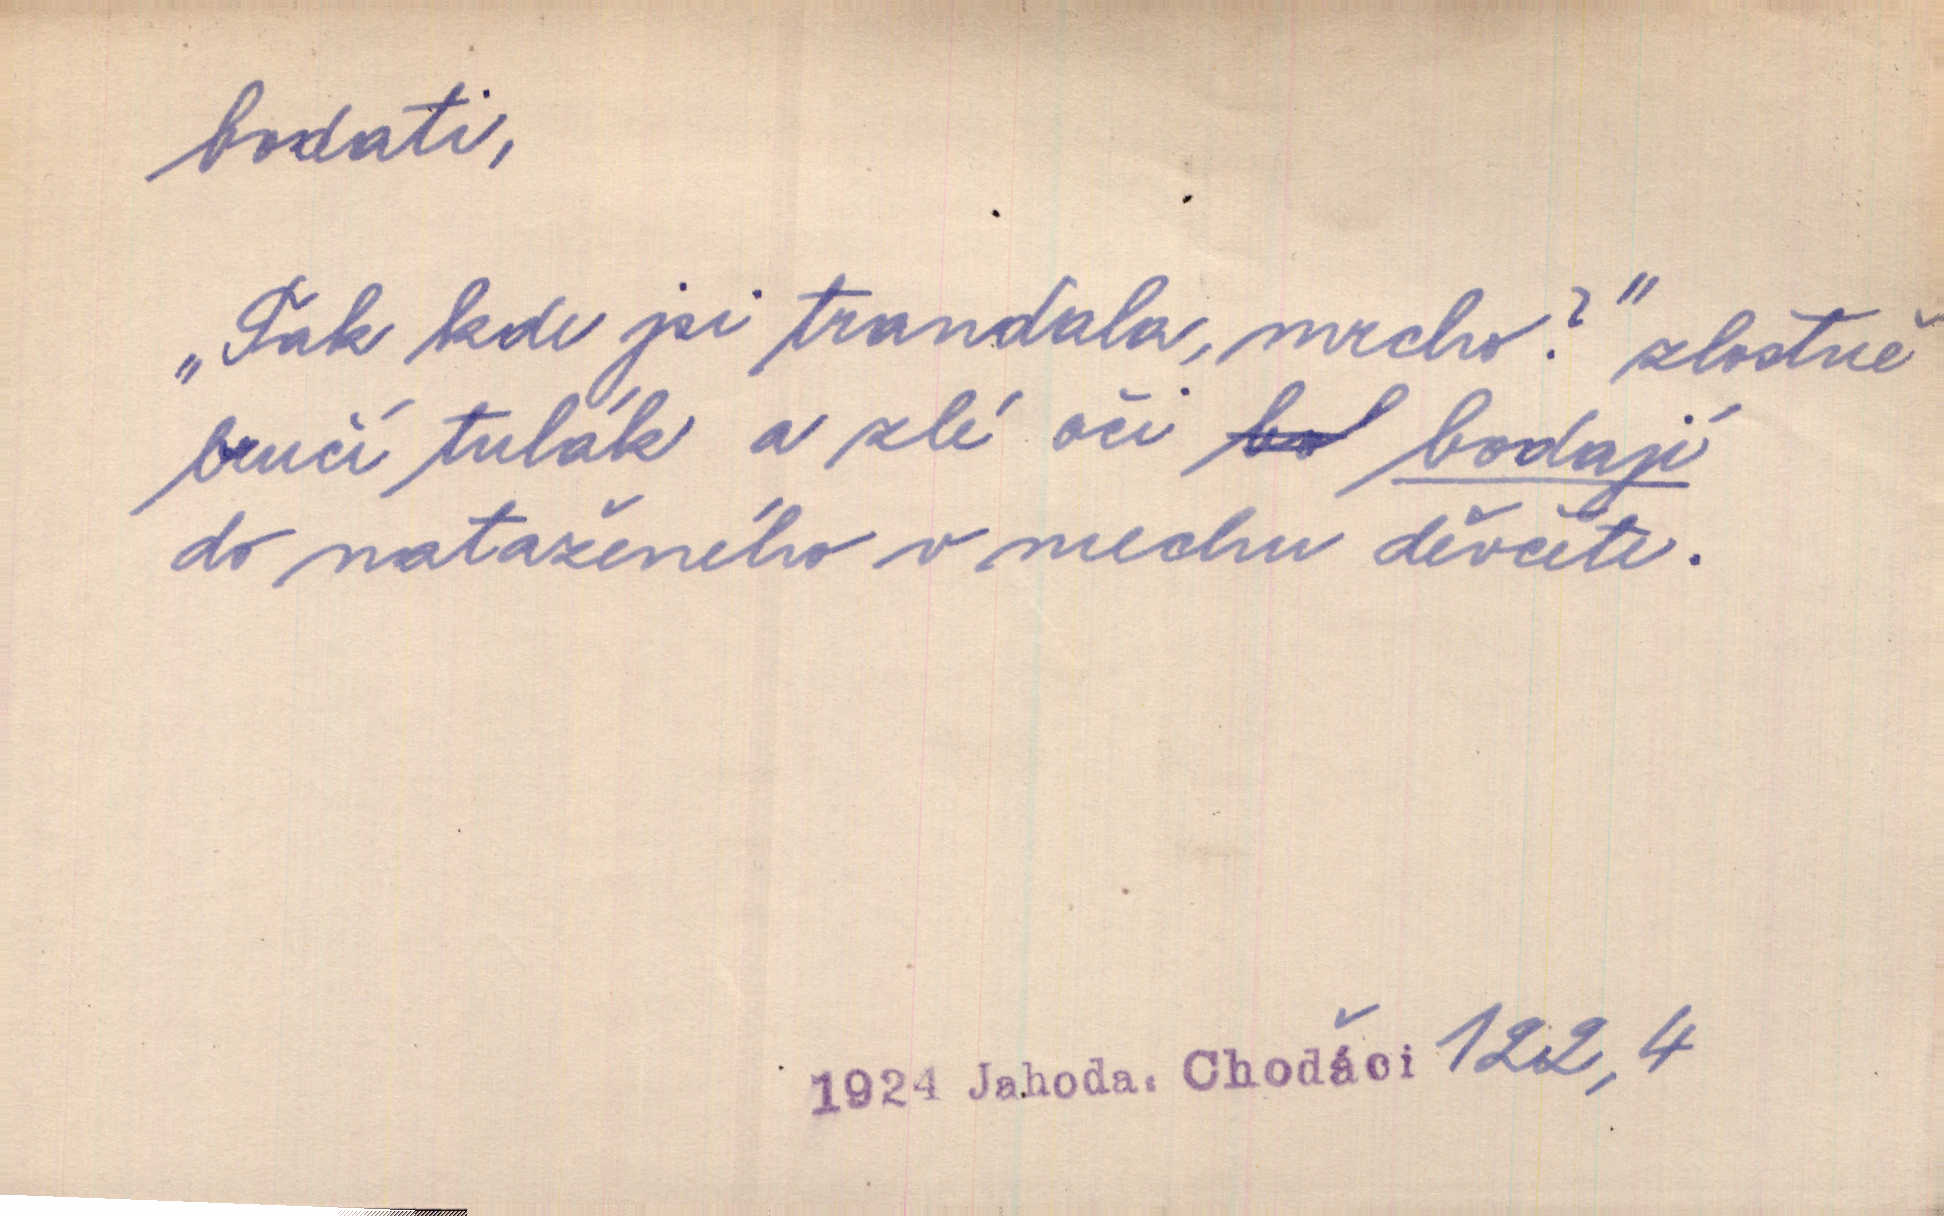 bodati,
„Tak kde jsi trandala, mrcho?" zlostně
bručí tulák a zlé oči bod bodají
do nataženého v mechu děvčete.
1924 Jahoda. Chodáči 122,4